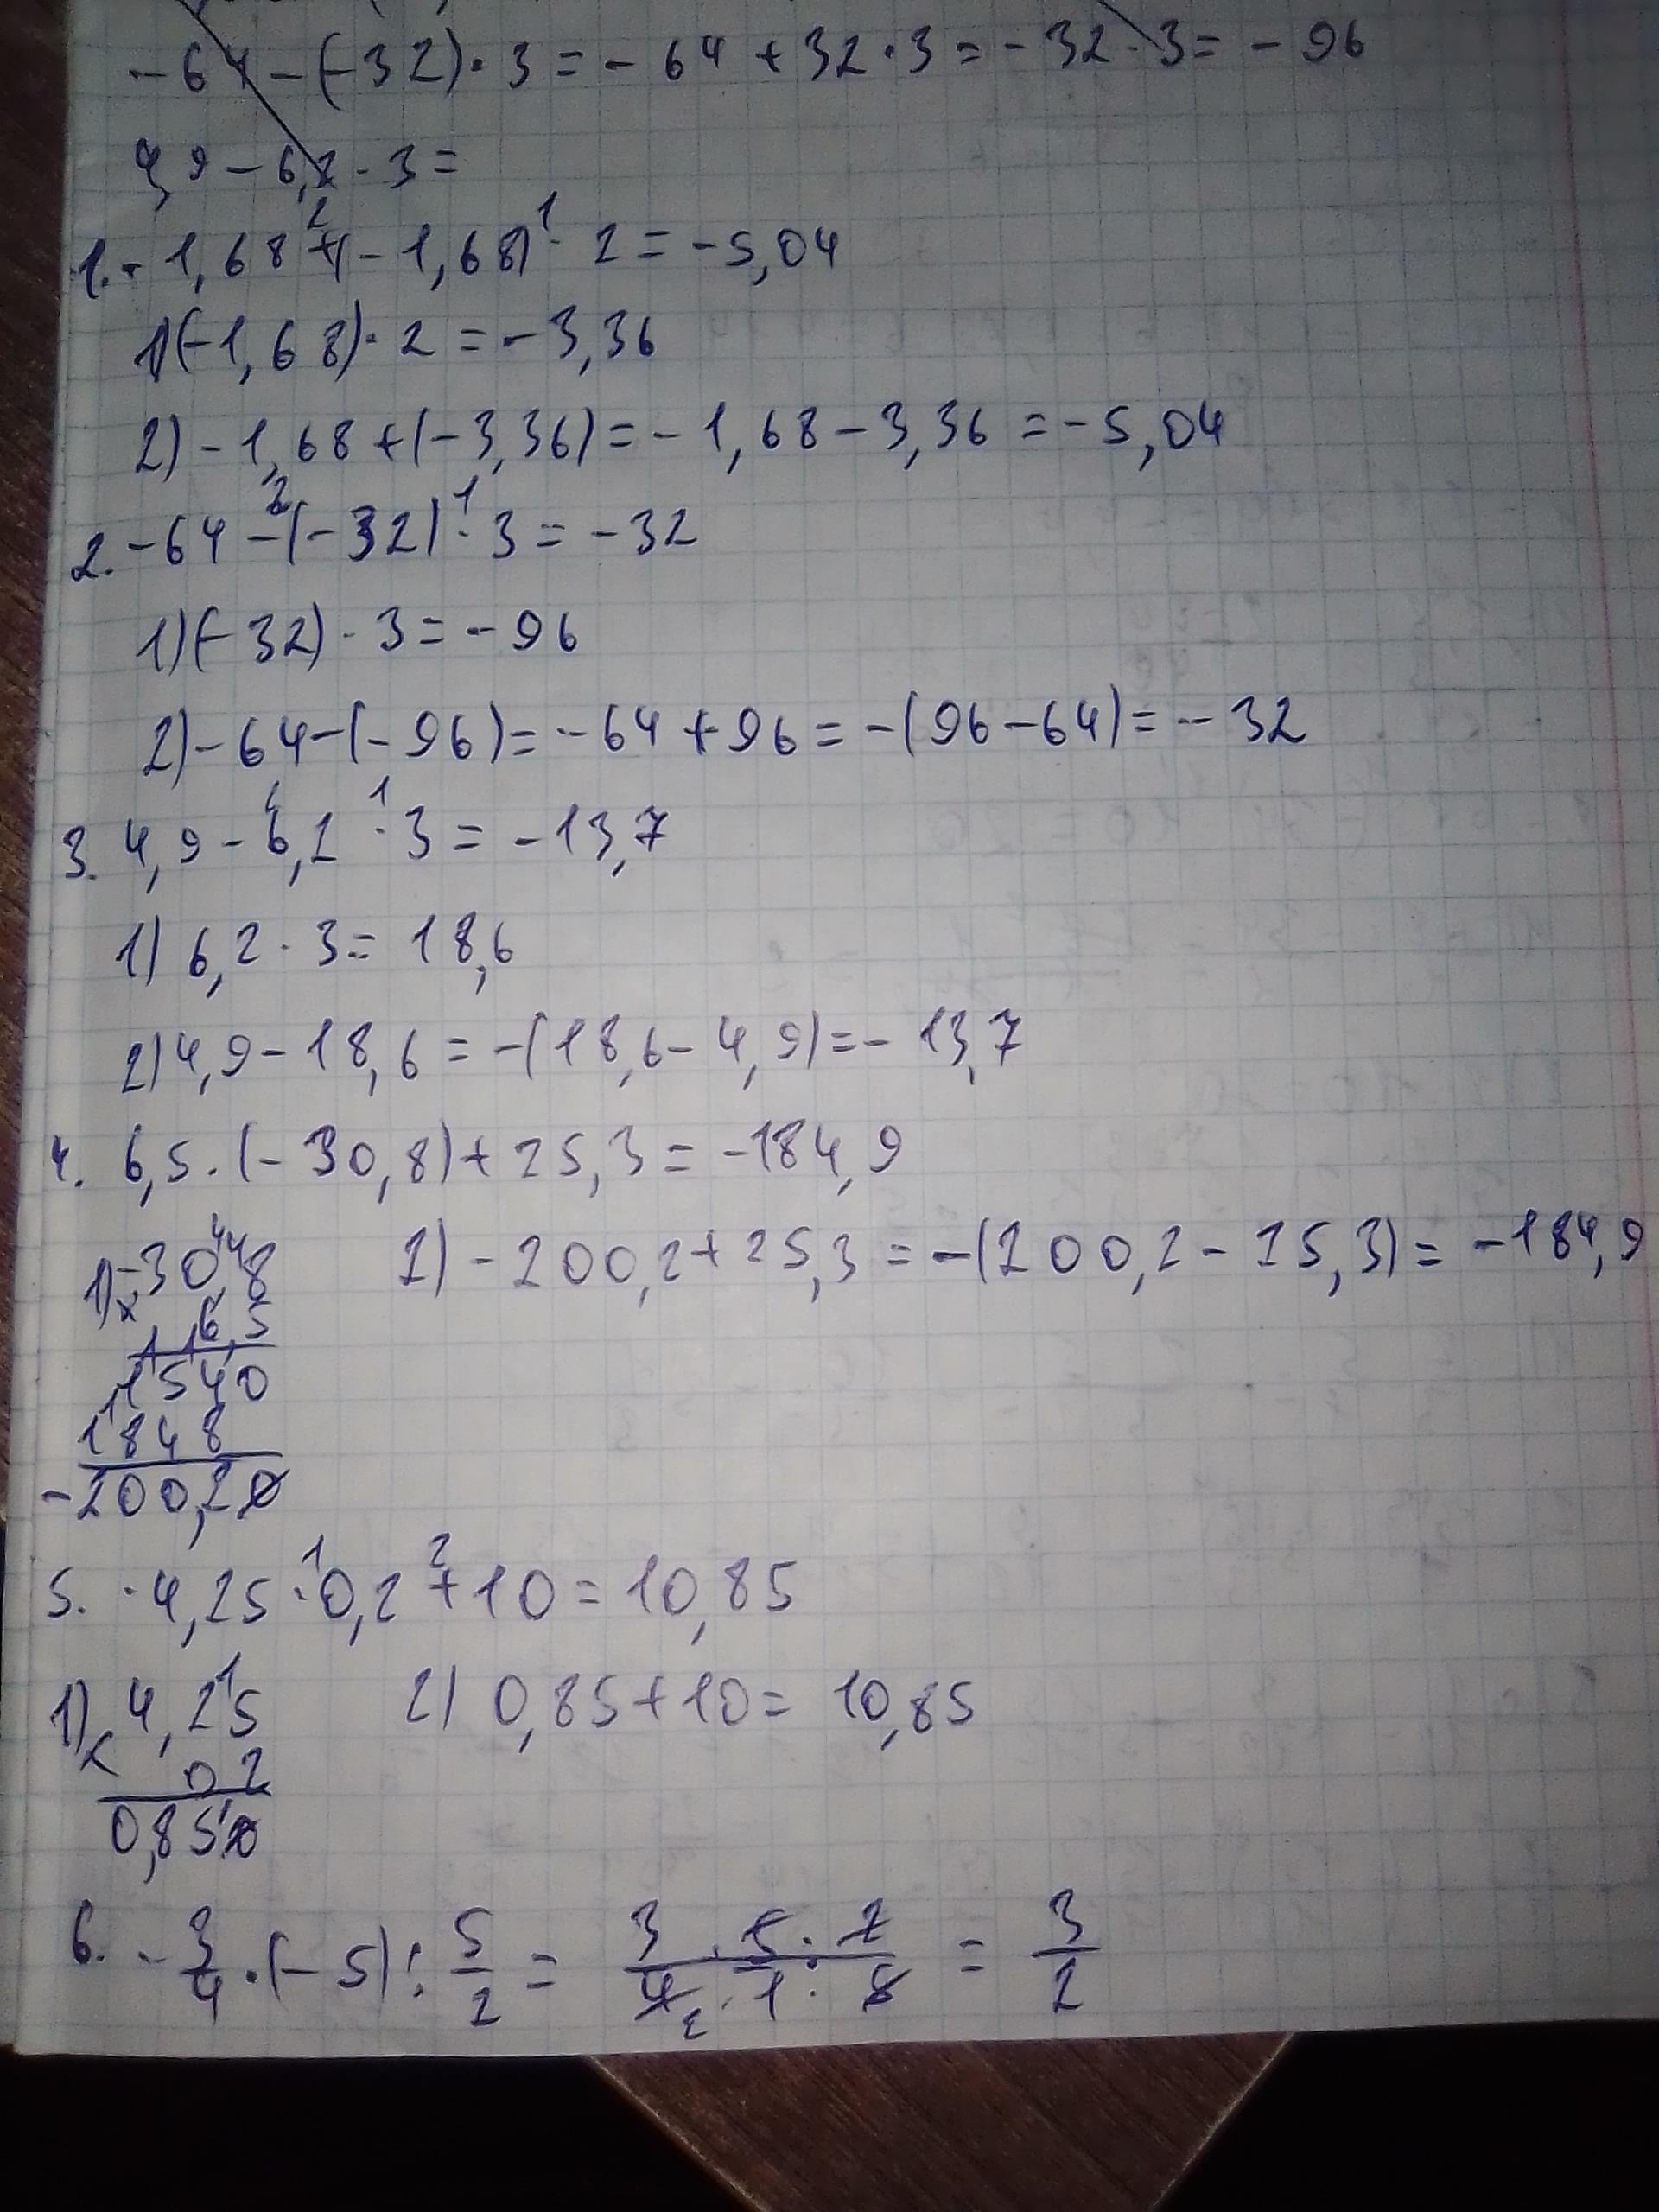 -64-(-32)·3=-64+32·3=-32·3=-96
4,9-6,2·3=
2 1
1. -1,68+(-1,68)·2=-5,04
1)(-1,68)·2=-3,36
2)-1,68+(-3,36)=-1,68-3,36=-5,04
2 1
2. -64-(-32)·3=-32
1)(-32)·3=-96
2)-64-(-96)=-64+96=-(96-64)=-32
1
3. 4,9-6,2·3=-13,7
1) 6,2·3=18,6
2)4,9-18,6=-(18,6-4,9)=-13,7
4. 6,5·(-30,8)+25,3=-184,9
44
1) -30,8 2) -200,2+25,3=-(200,2-25,3)=-184,9
× 6,5
1 1
1540
1848
-200,20
1 2
5. -4,25·0,2+10=10,85
1
1) 4,25 2) 0,85+10=10,85
× 0 2
0,850
6. -3/4·(-5):5/2=3·5·2/4·1·5=3/2
2